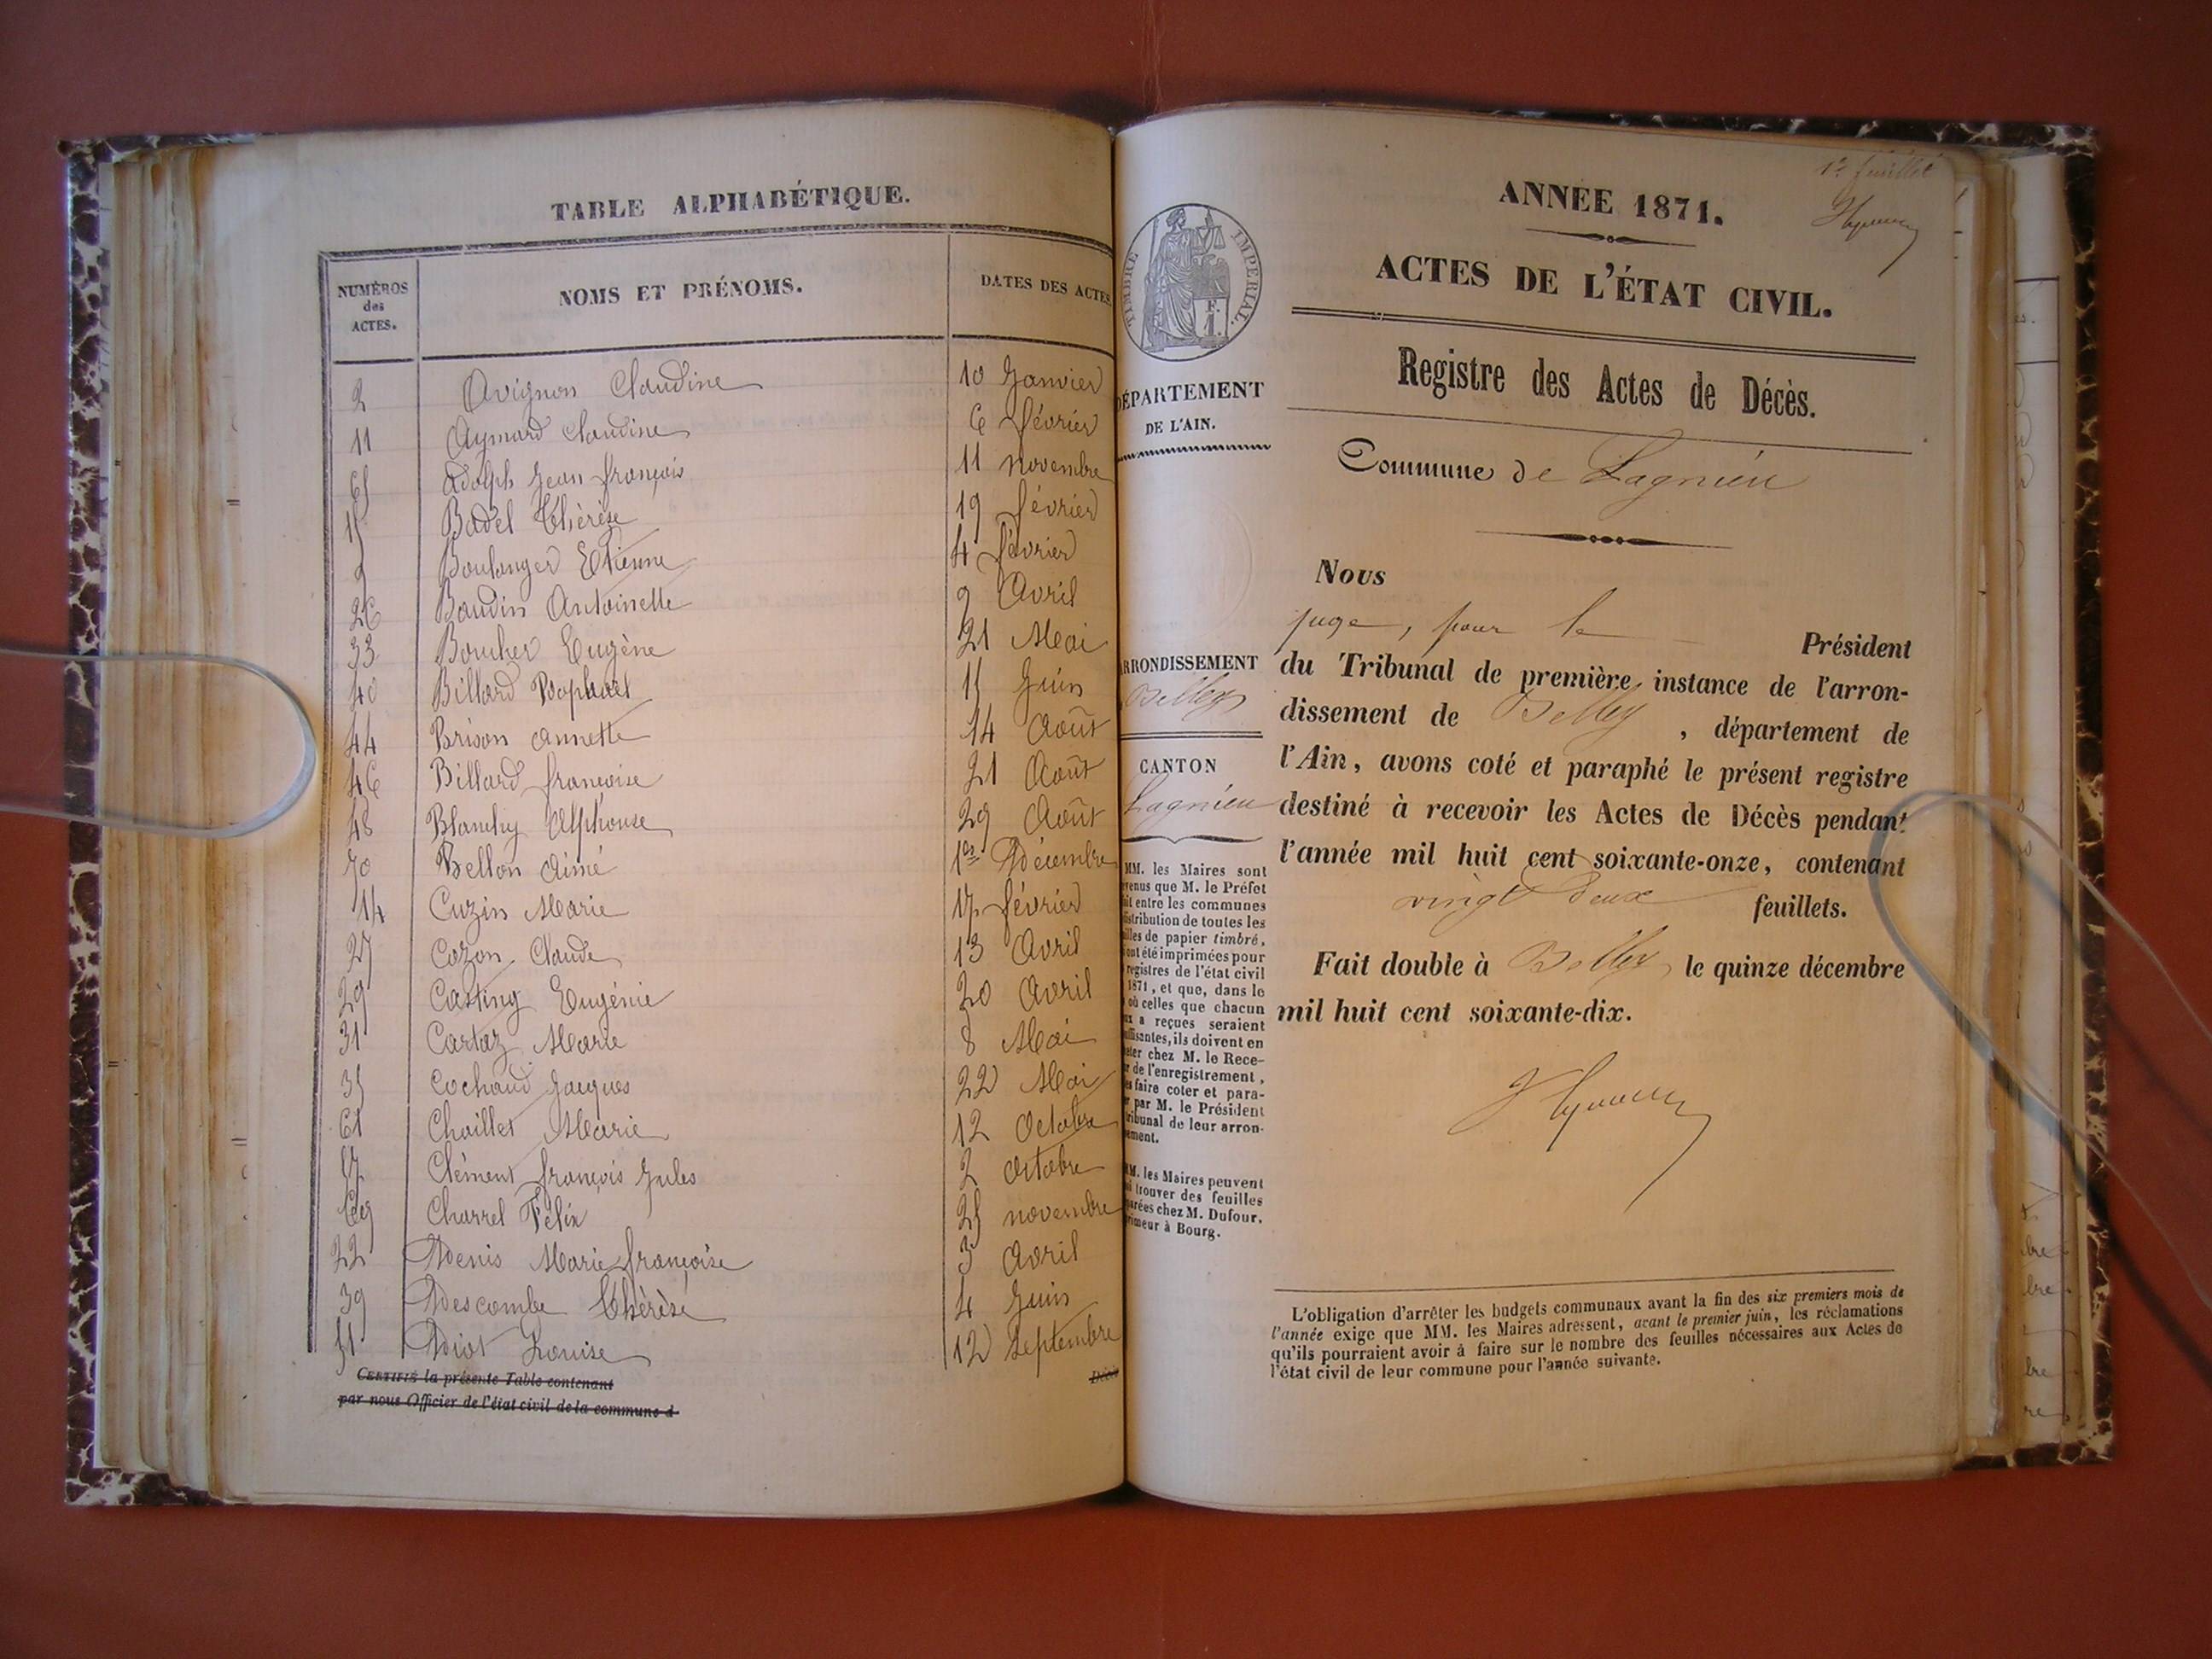 TABLE ALPHABÉTIQUE.
NUMÉROS des ACTES. NOMS ET PRÉNOMS. DATES DES ACTES
2 Avignon Claudine 10 Janvier
11 Aymard Claudine 6 février
65 Adolph Jean françois 11 novembre
15 Badel Thérèse 19 février
9 Boulanger Etienne 4 février
26 Baudin Antoinette 9 Avril
33 Boucher Eugène 21 Mai
40 Billard Raphaël 15 Juin
44 Brison Annette 14 Août
46 Billard françoise 21 Août
48 Blanchy Alphonse 29 Août
70 Bellon Aimé 1er Décembre
14 Cuzin Marie 17 février
27 Cozon Claude 13 Avril
29 Casting Eugénie 20 Avril
31 Cartaz Marie 8 Mai
35 Cochaud Jacques 22 Mai
61 Chaillet Marie 12 Octobre
57 Clément françois Jules 2 Octobre
69 Charrel Félix 25 novembre
22 Denis Marie françoise 3 Avril
39 Descombe Thérèse 4 Juin
51 Diot Louise 12 Septembre
CERTIFIÉ la présente Table contenant Décès
par nous Officier de l'état civil de la commune d
1er feuillet
ANNÉE 1871.
ACTES DE L'ÉTAT CIVIL.
TIMBRE IMPERIAL.
F.
1.
Registre des Actes de Décès.
DÉPARTEMENT
DE L'AIN.
Commune de Lagnieu
Nous
juge, pour le Président
ARRONDISSEMENT
Belley
du Tribunal de première instance de l'arron-
dissement de Belley, département de
l'Ain, avons coté et paraphé le présent registre
destiné à recevoir les Actes de Décès pendant
l'année mil huit cent soixante-onze, contenant
vingt deux feuillets.
Fait double à Belley le quinze décembre
mil huit cent soixante-dix.
CANTON
Lagnieu
MM. les Maires sont
venus que M. le Préfet
ait entre les communes
distribution de toutes les
illes de papier timbré,
ont été imprimées pour
registres de l'état civil
1871, et que, dans le
où celles que chacun
ux a reçues seraient
uffisantes, ils doivent en
eter chez M. le Rece-
r de l'enregistrement,
es faire coter et para-
r par M. le Président
tribunal de leur arron-
ement.
MM. les Maires peuvent
i trouver des feuilles
parées chez M. Dufour,
rimeur à Bourg.
L'obligation d'arrêter les budgets communaux avant la fin des six premiers mois de
l'année exige que MM. les Maires adressent, avant le premier juin, les réclamations
qu'ils pourraient avoir à faire sur le nombre des feuilles nécessaires aux Actes de
l'état civil de leur commune pour l'année suivante.